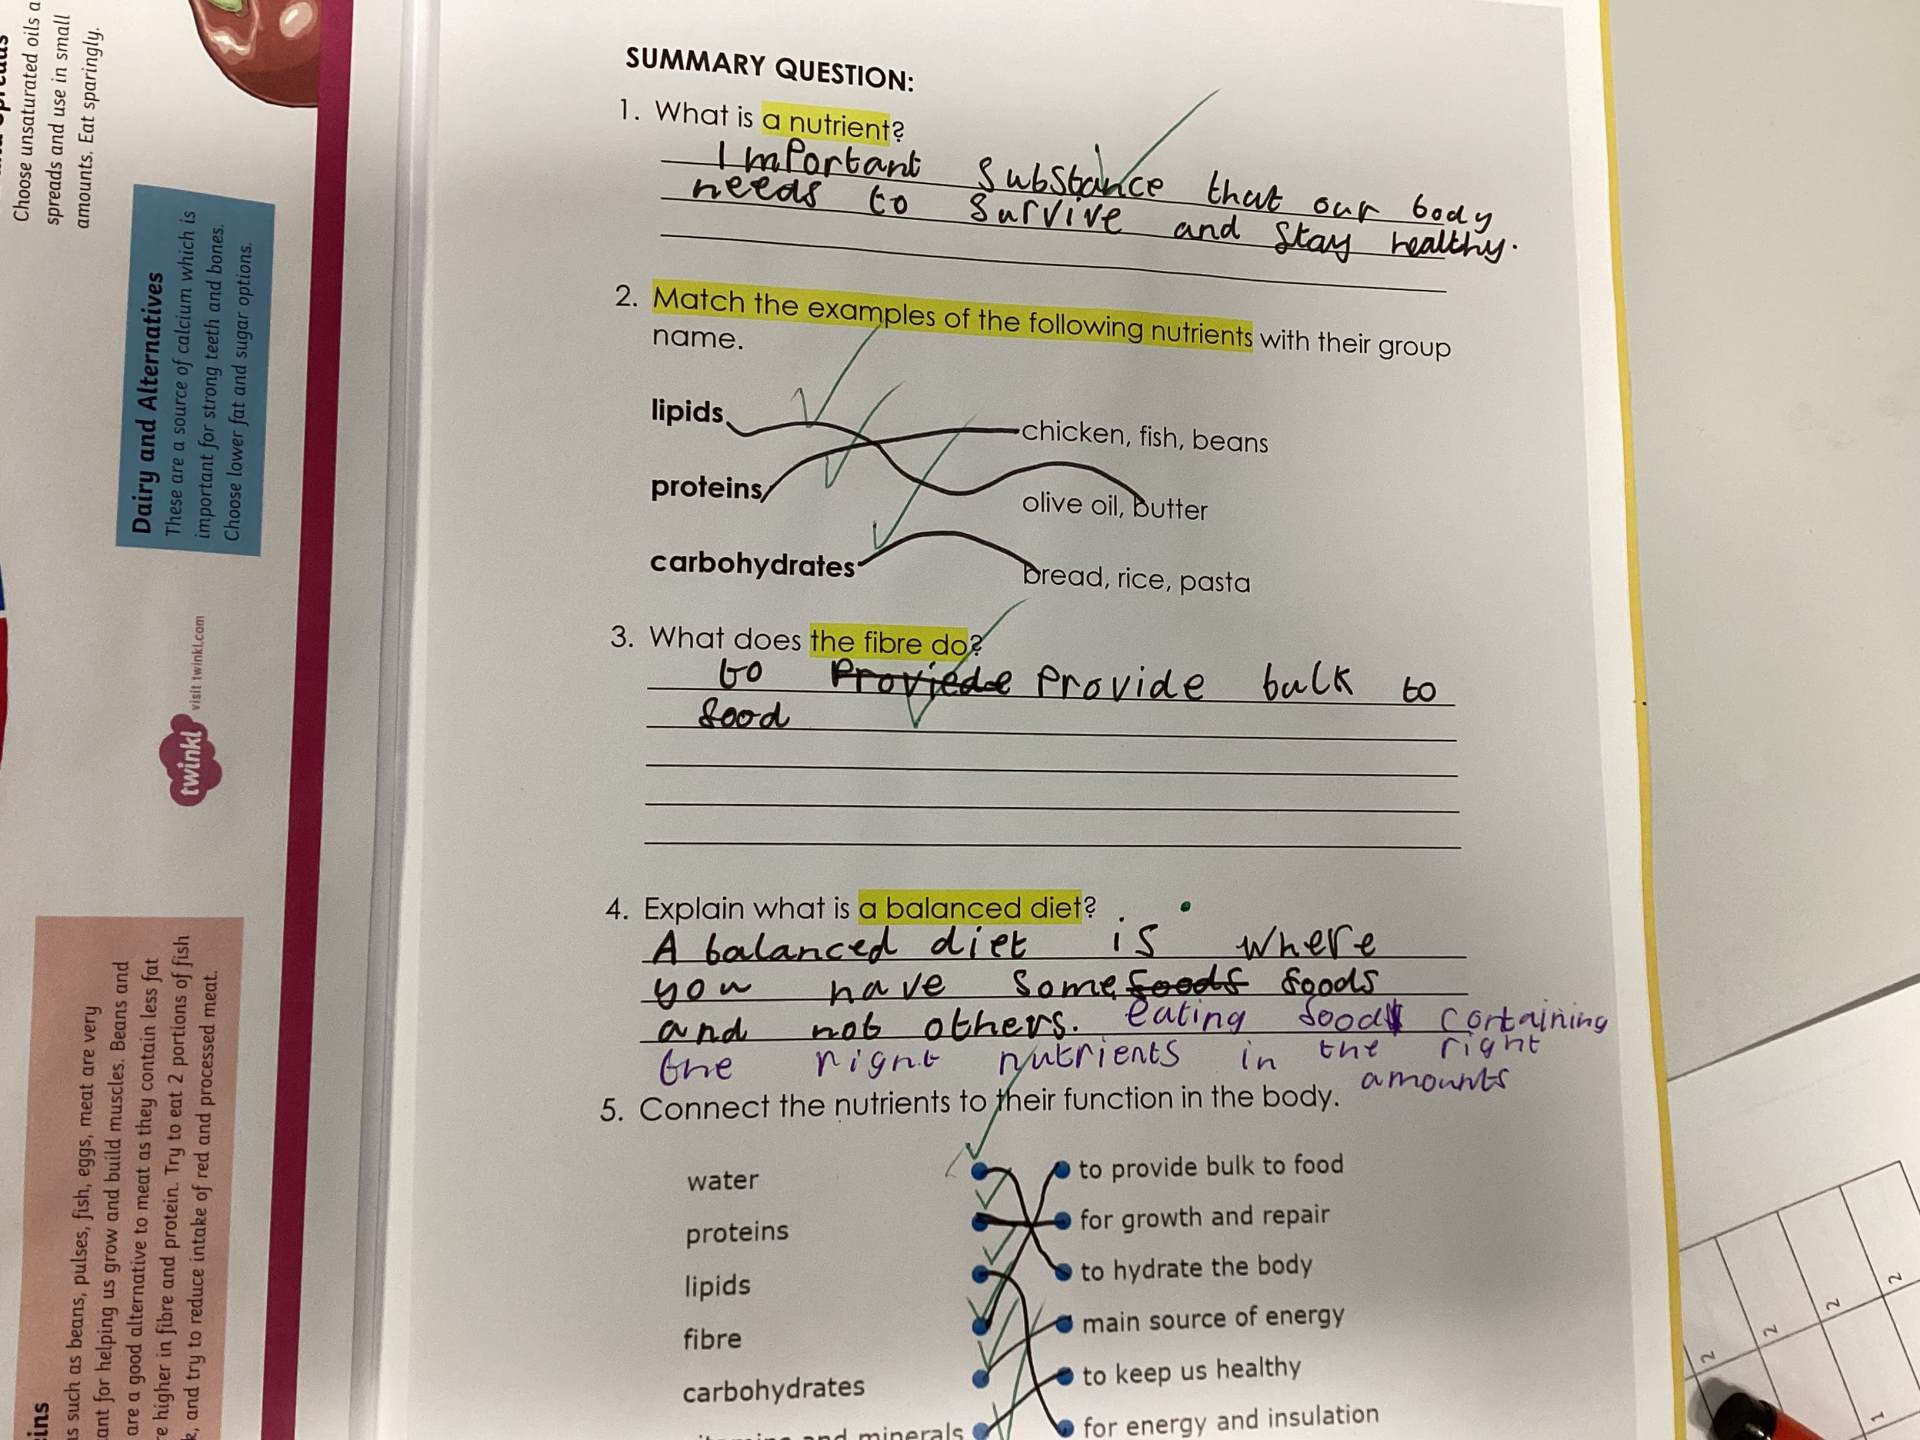 Choose unsaturated oils a
spreads and use in small
amounts. Eat sparingly.
Dairy and Alternatives
These are a source of calcium which is
important for strong teeth and bones.
Choose lower fat and sugar options.
twinkl
visit twinkl.com
ins
s such as beans, pulses, fish, eggs, meat are very
ant for helping us grow and build muscles. Beans and
are a good alternative to meat as they contain less fat
re higher in fibre and protein. Try to eat 2 portions of fish
k, and try to reduce intake of red and processed meat.
SUMMARY QUESTION:
1. What is a nutrient?
Important substance that our body
needs to survive and stay healthy.
2. Match the examples of the following nutrients with their group
name.
lipids
chicken, fish, beans
proteins
olive oil, butter
carbohydrates
bread, rice, pasta
3. What does the fibre do?
to Proviede Provide bulk to
food
4. Explain what is a balanced diet?
A balanced diet is where
you have some foods foods
and not others. eating foods containing
the right nutrients in the right
amounts
5. Connect the nutrients to their function in the body.
water
to provide bulk to food
proteins
for growth and repair
lipids
to hydrate the body
fibre
main source of energy
carbohydrates
to keep us healthy
and minerals
for energy and insulation
2
2
2
2
1